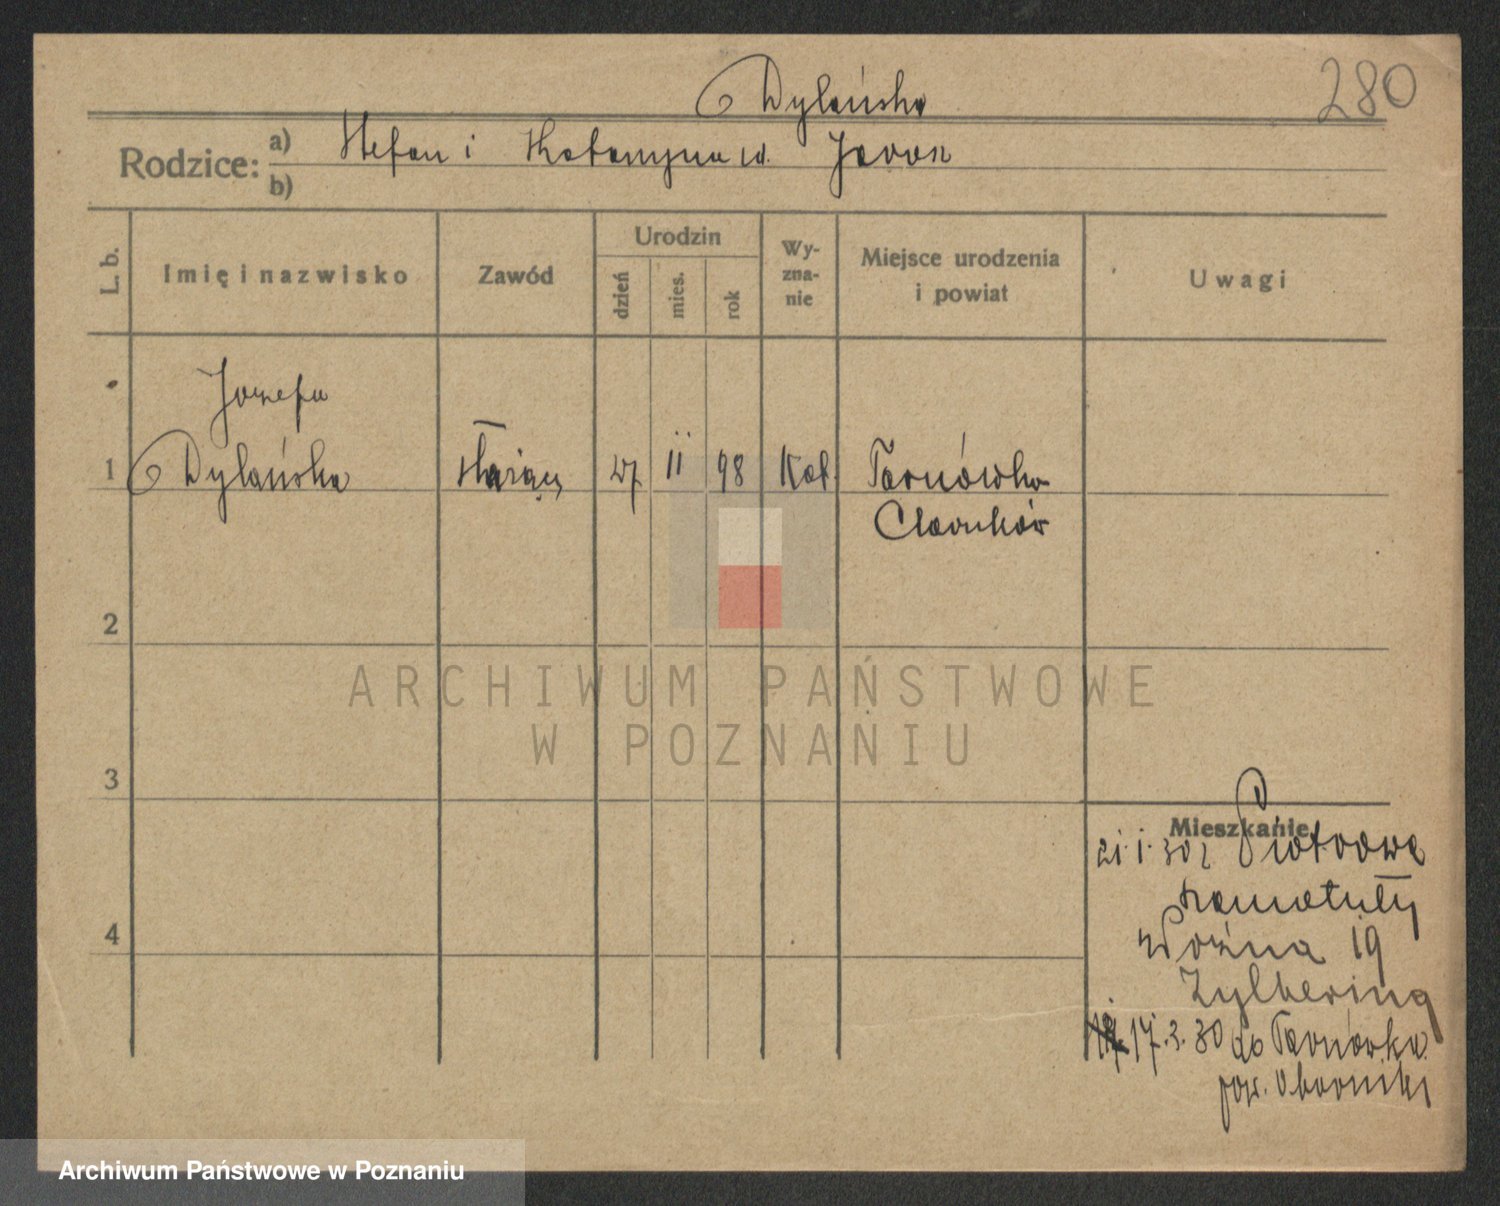 Dylańska
280
Rodzice: a) Stefan i Katarzyna
b)
L. b.
Imię i nazwisko
Zawód
Urodzin
dzień
mies.
rok
Wy-
zna-
nie
Miejsce urodzenia
i powiat
Uwagi
Józefa
1 Dylańska służąca 27 II 98 Kat. Tarnówka
Czarnków
2
3
4
Mieszkanie
21.1.30 z Piotrowa
Szamotuły
Woźna 19
17.3.30 do Tarnówka
pow. Oborniki
ARCHIWUM PAŃSTWOWE
W POZNANIU
Archiwum Państwowe w Poznaniu